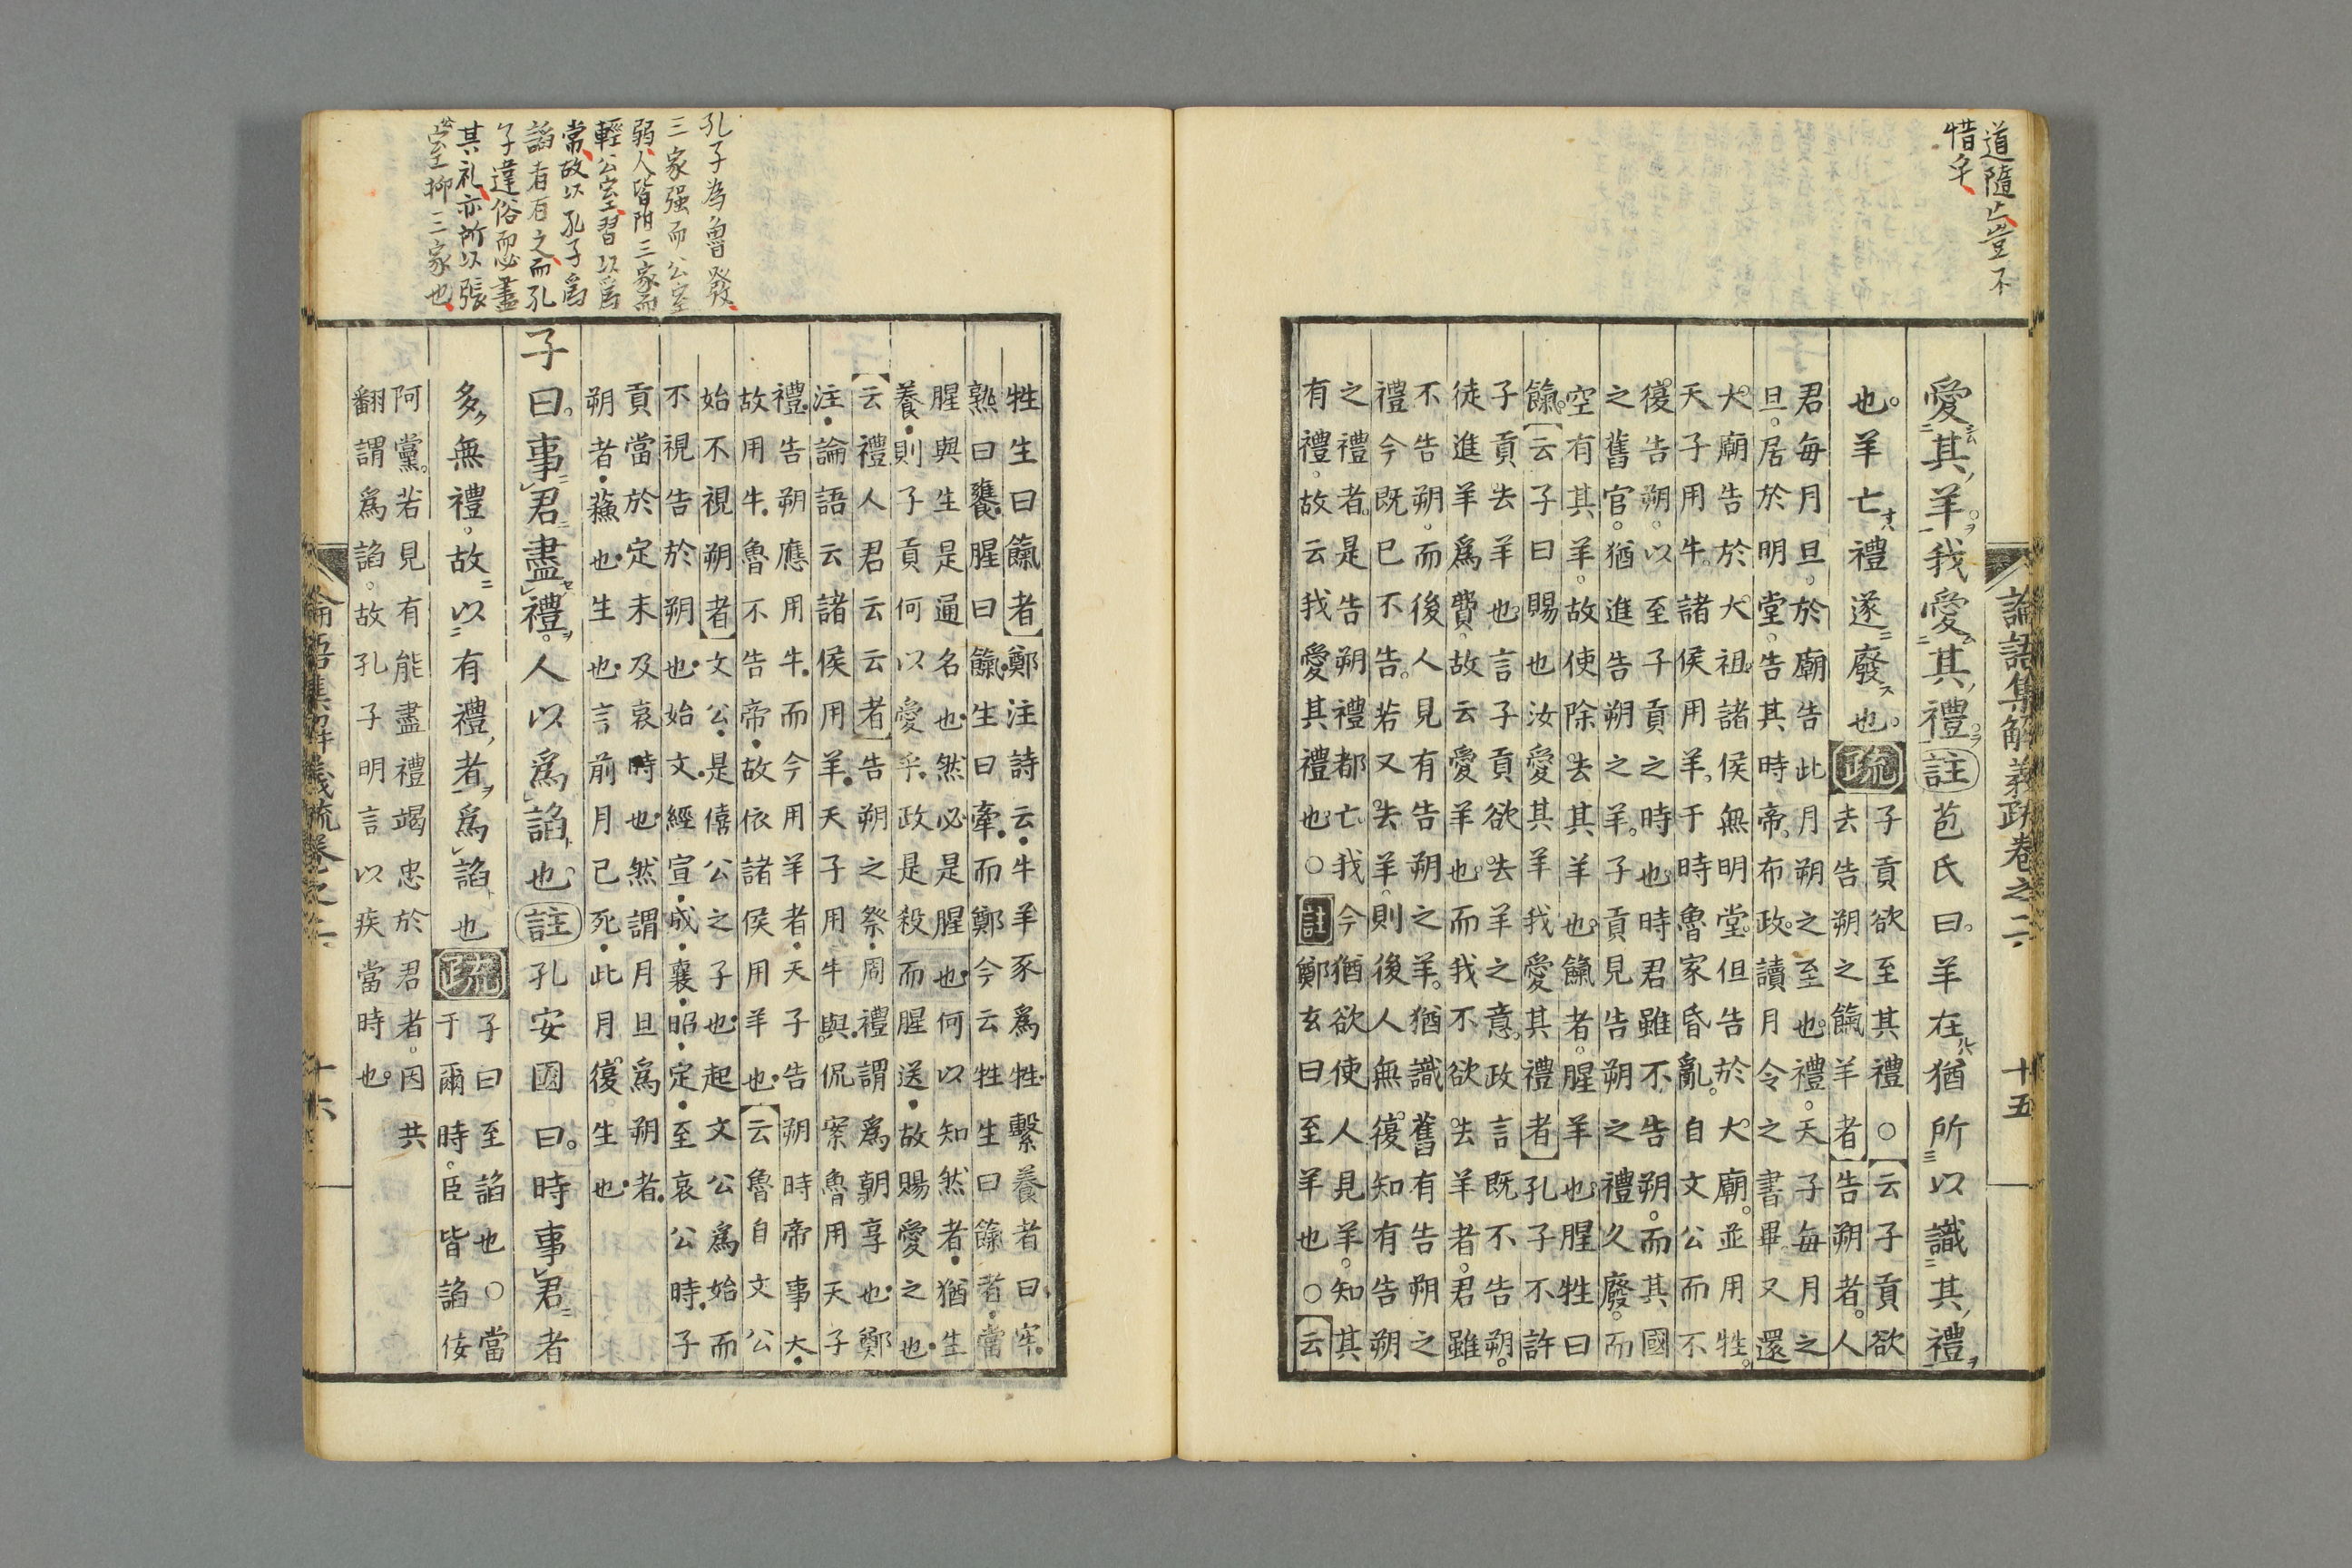 道隨亡豈不
惜乎
論語集解義疏卷之二 十五
愛其羊我愛其禮註苞氏曰羊在猶所以識其禮
也。羊亡禮遂廢也。疏
子貢欲至其禮○云子貢欲
去告朔之餼羊者告朔者。人
君每月旦。於廟告此月朔之至也。禮。天子每月之
旦。居於明堂。告其時帝。布政。讀月令之書畢。又還
大廟告於大祖。諸侯無明堂。但告於大廟。並用牲。
天子用牛。諸侯用羊。于時魯家昏亂。自文公而不
復告朔。以至子貢之時也。時君雖不告朔。而其國
之舊官。猶進告朔之羊。子貢見告朔之禮久廢。而
空有其羊。故使除去其羊也。餼者。腥羊也。腥牲曰
餼。云子曰賜也汝愛其羊我愛其禮者孔子不許
子貢去羊也。言子貢欲去羊之意。政言既不告朔。
徒進羊爲費。故云愛羊也。而我不欲去羊者。君雖
不告朔。而後人見有告朔之羊。猶識舊有告朔之
禮今既已不告。若又去羊。則後人無復知有告朔
之禮者。是告朔禮都亡。我今猶欲使人見羊。知其
有禮。故云我愛其禮也。○註鄭玄曰至羊也○云
孔子為魯發
三家强而公室
弱人皆附三家而
輕公室習以爲
常故以孔子爲
諂者有之而孔
子違俗而必盡
其礼亦所以張
公室抑三家也
牲生曰餼者鄭注詩云。牛羊豕爲牲。繫養者曰牢。
熟曰饔。腥曰餼。生曰牽。而鄭今云牲生曰餼者。當
腥與生是通名也。然必是腥也。何以知然者。猶生
養。則子貢何以愛乎。政是殺而腥送。故賜愛之也。
云禮人君云云者告朔之祭。周禮謂爲朝享也。鄭
注。論語云諸侯用羊。天子用牛與。侃案魯用天子
禮。告朔應用牛。而今用羊者。天子告朔時帝事大。
故用牛。魯不告帝。故依諸侯用羊也。云魯自文公
始不視朔者文公。是僖公之子也。起文公爲始而
不視告於朔也。始文。經宣。成。襄。昭。定。至哀公時。子
貢當於定末及哀時也。然謂月旦爲朔者。
朔者。蘇也。生也。言前月已死。此月復生也。
子曰。事君盡禮。人以爲諂也。註孔安國曰。時事君者
多無禮。故以有禮者爲諂也疏
子曰至諂也○當
于爾時。臣皆諂佞
阿黨。若見有能盡禮竭忠於君者。因共
翻謂爲諂。故孔子明言以疾當時也。
論語集解義疏卷之二 十六